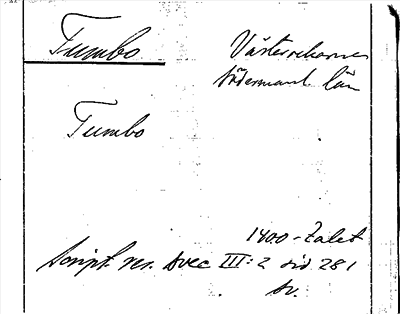 Tumbo Västerrekarne
Södermanl. län
Tumbo
1400-talet
Script. rer. svec III:2 sid 281
sv.